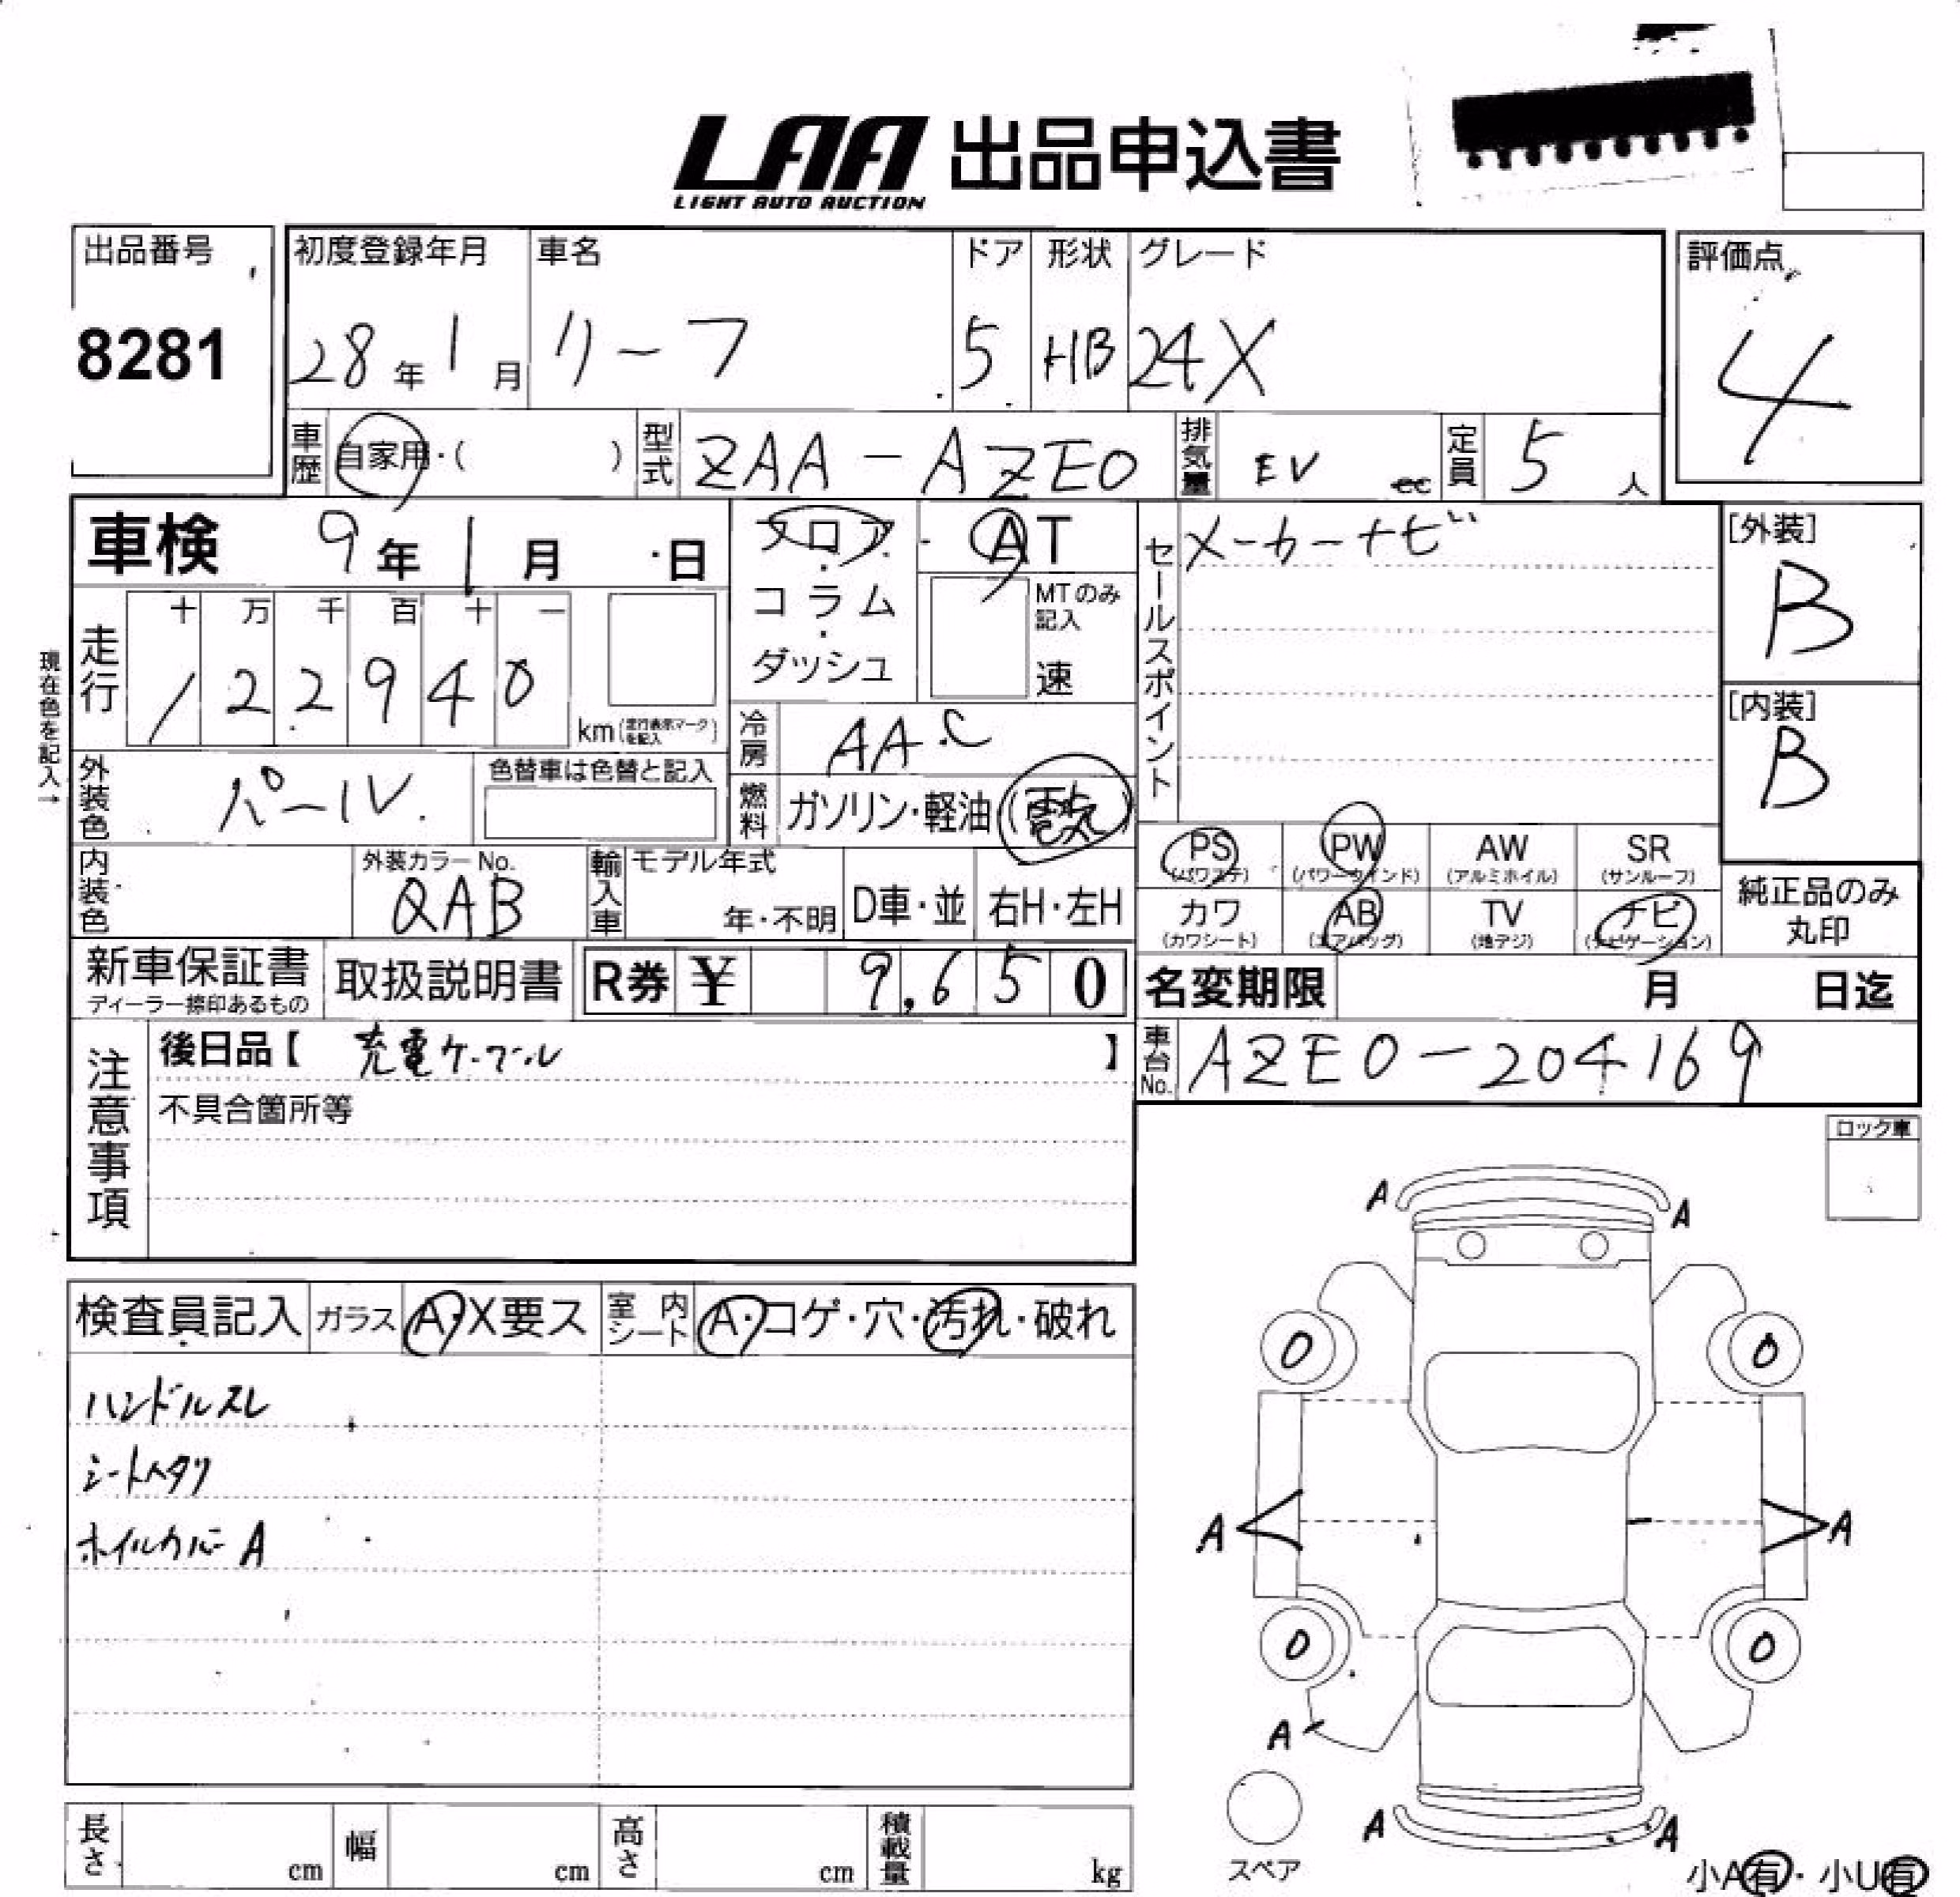 LAA 出品申込書
LIGHT AUTO AUCTION
出品番号
8281
初度登録年月
28年1月
車名
リーフ
ドア
5
形状
HB
グレード
24X
評価点
4
車歴
自家用・( )
型式
ZAA-AZE0
排気量
EV cc
定員
5人
車検 9年1月 日
フロア・コラム・ダッシュ
AT
MTのみ記入
速
セールスポイント
メーカーナビ
[外装]
B
[内装]
B
現在色を記入→
走行
十 万 千 百 十 一
1 2 2 9 4 0
km(走行表示マークを記入)
冷房
AAC
外装色
パール
色替車は色替と記入
燃料
ガソリン・軽油(電気)
内装色
外装カラーNo.
QAB
輸入車
モデル年式
年・不明
D車・並
右H・左H
PS
(パワステ)
PW
(パワーウインド)
AW
(アルミホイル)
SR
(サンルーフ)
カワ
(カワシート)
AB
(エアバッグ)
TV
(地デジ)
ナビ
(ナビゲーション)
純正品のみ
丸印
新車保証書
ディーラー捺印あるもの
取扱説明書
R券 ¥ 9,650
名変期限 月 日迄
注意事項
後日品【 充電ケーブル 】
不具合箇所等
車台No.
AZE0-204169
ロック車
検査員記入
ガラス A・X要ス
室内シート A・コゲ・穴・汚れ・破れ
ハンドルスレ
シートヘタリ
ホイルカバーA
A A
0 0
A A
0 0
A
A A
スペア
小A有・小U有
長さ cm
幅 cm
高さ cm
積載量 kg